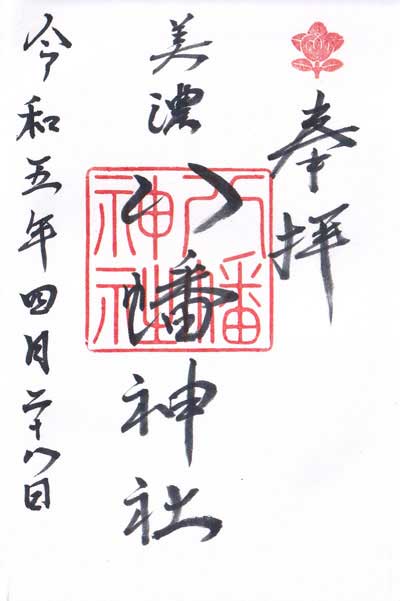 奉拝
美濃
八幡神社
八幡
神社
令和五年四月二十八日